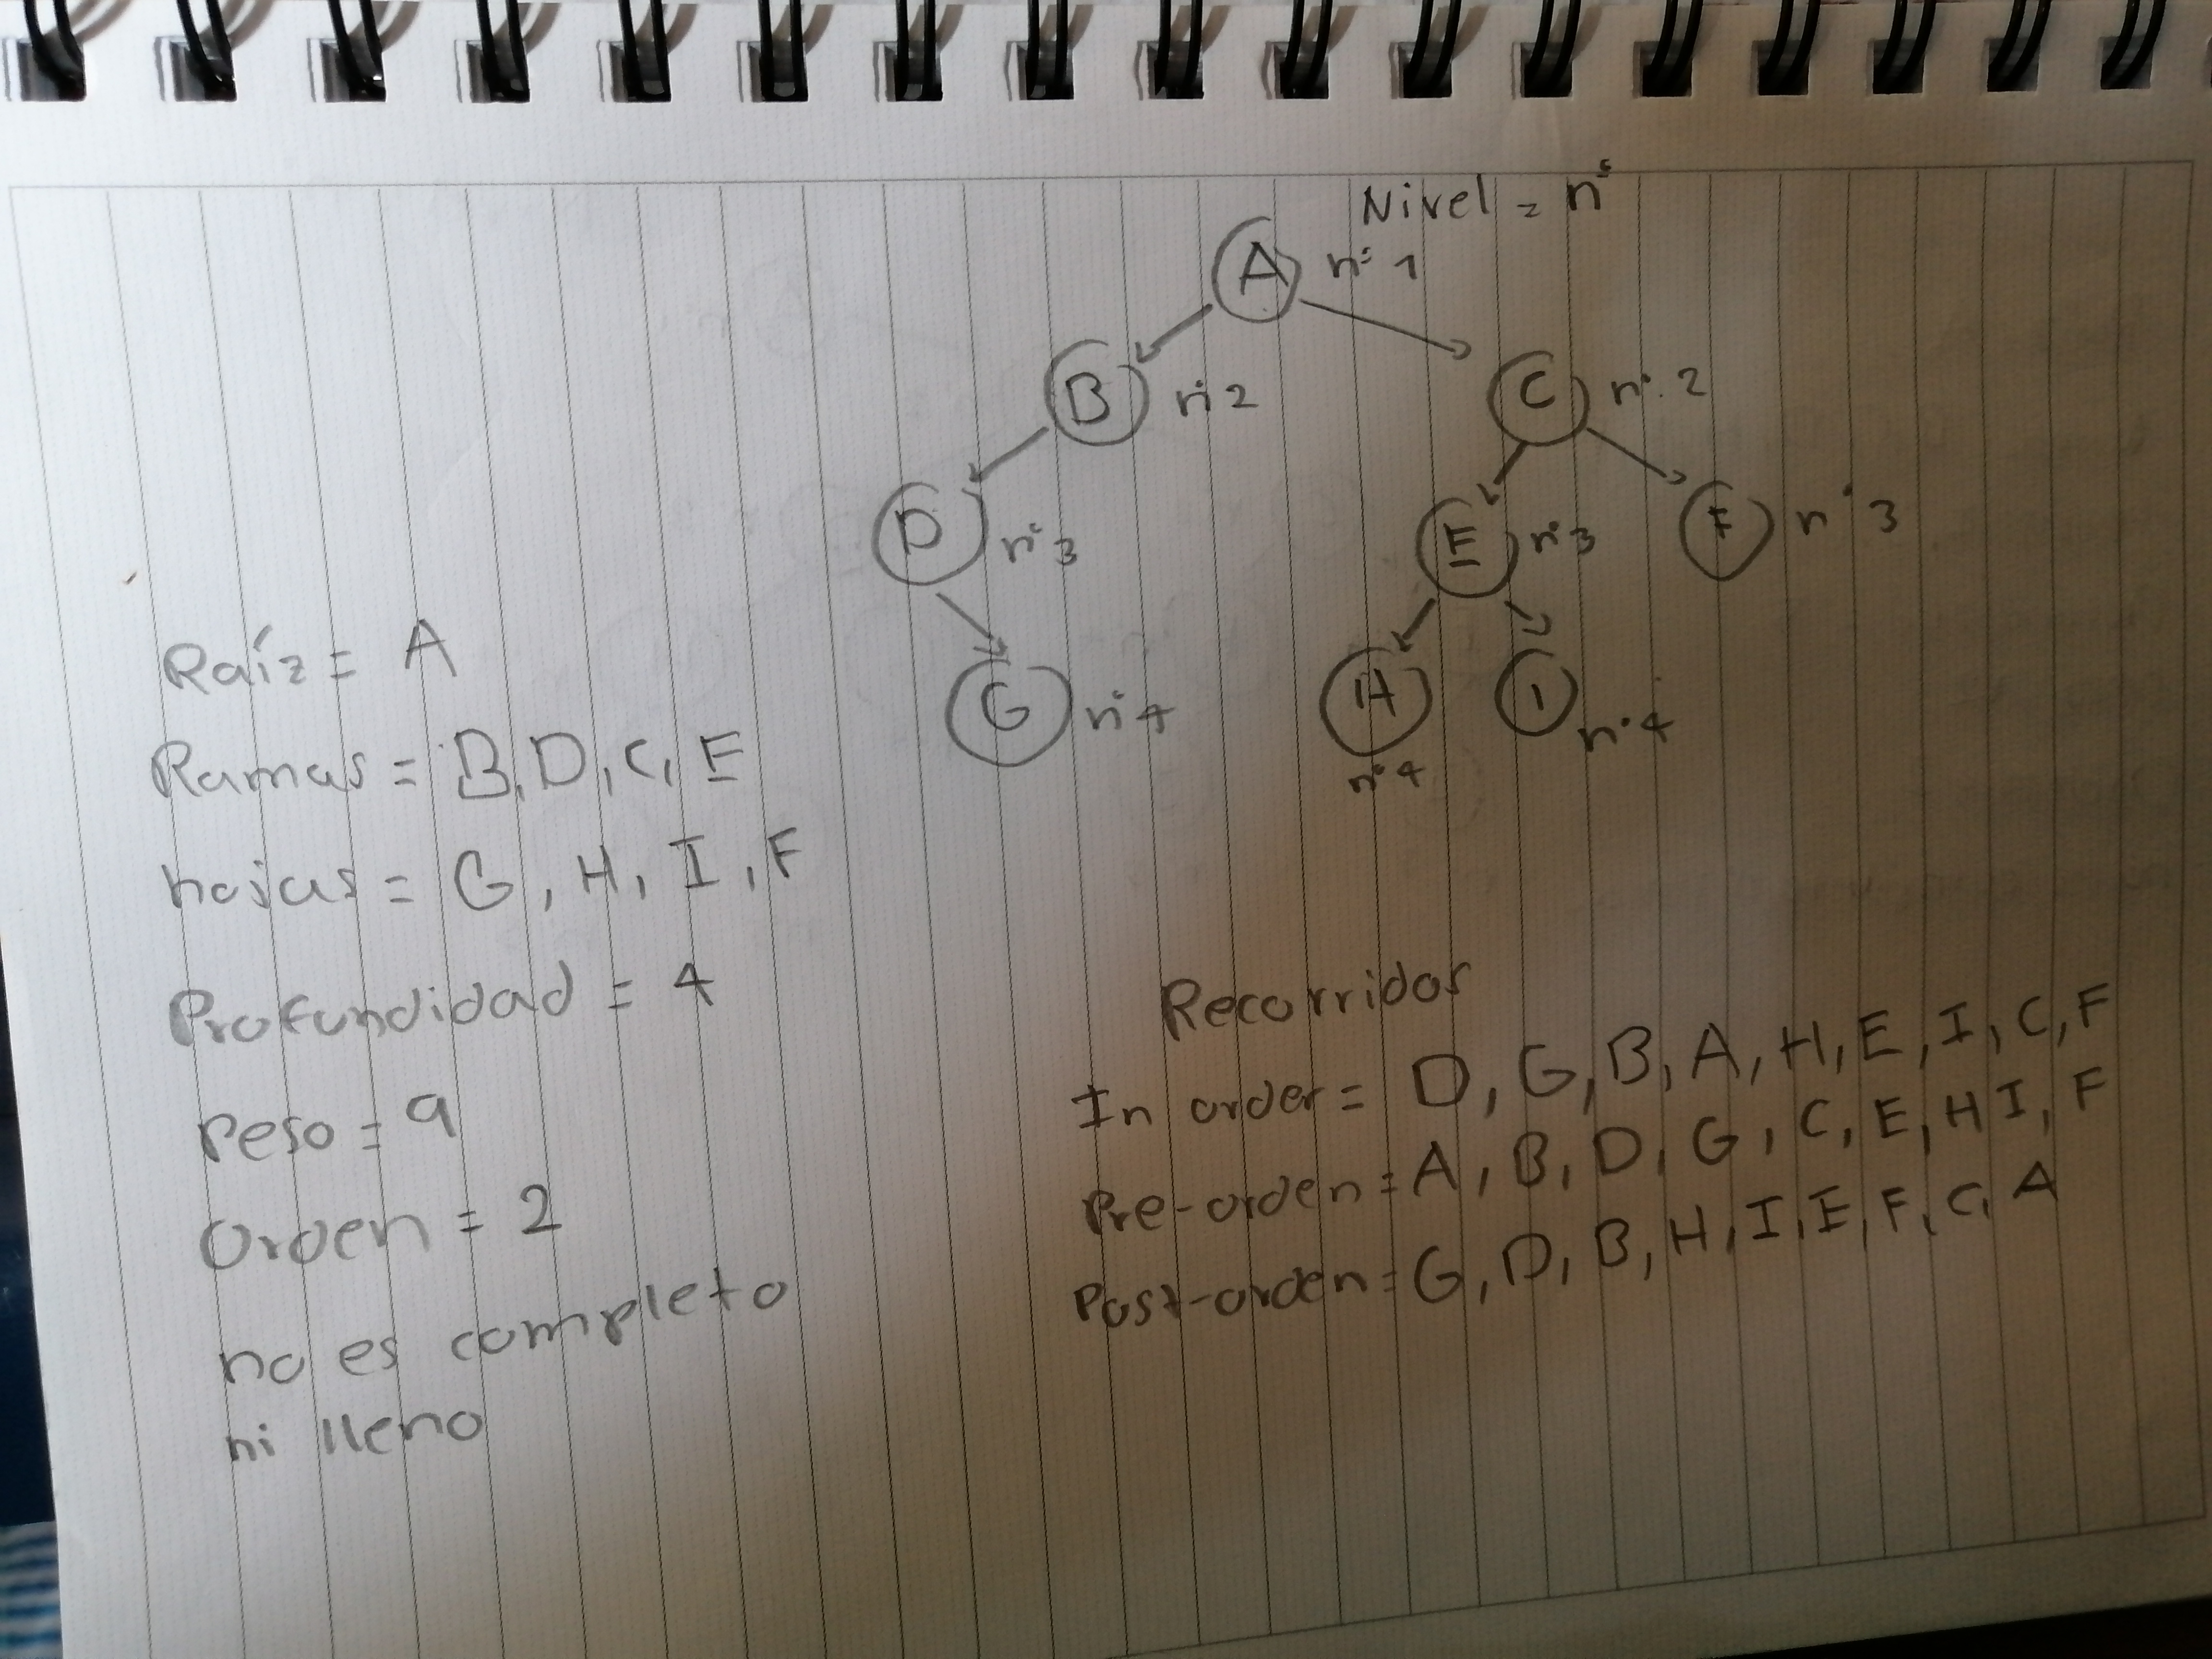 Nivel = n°
A n° 1
B n° 2
C n° 2
D n° 3
E n° 3
F n° 3
G n° 4
H
I n° 4
n° 4
Raíz = A
Ramas = B, D, C, E
hojas = G, H, I, F
Profundidad = 4
Peso = 9
Orden = 2
no es completo
ni lleno
Recorridos
In order = D, G, B, A, H, E, I, C, F
Pre-orden = A, B, D, G, C, E, H I, F
Post-orden = G, D, B, H, I, E, F, C, A